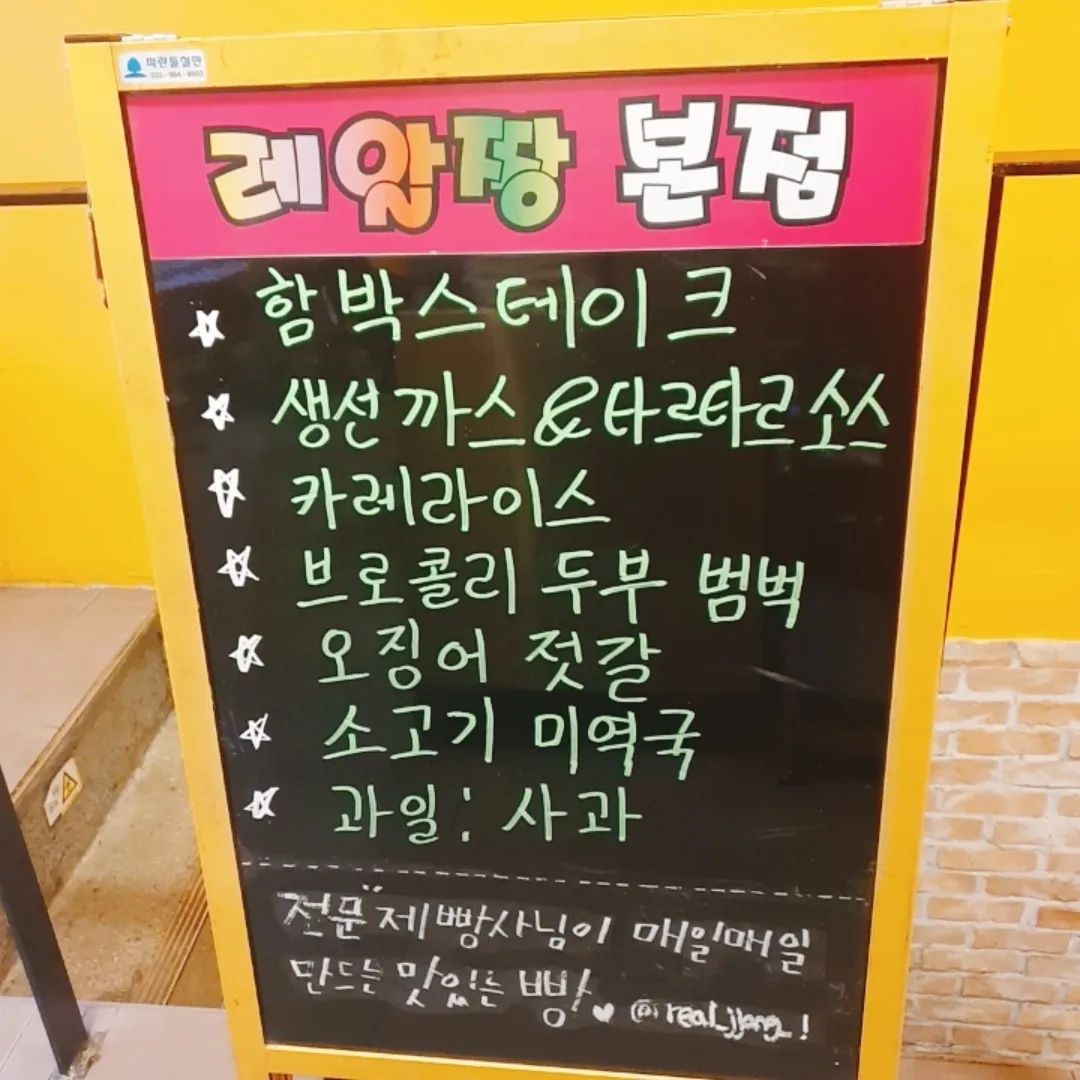 파란들실면
레알짱 본점
함박스테이크
생선까스&타르타르소스
카레라이스
브로콜리 두부 범벅
오징어 젓갈
소고기 미역국
과일: 사과
전문 제빵사님이 매일매일
만드는 맛있는 빵 @real_jjang_!